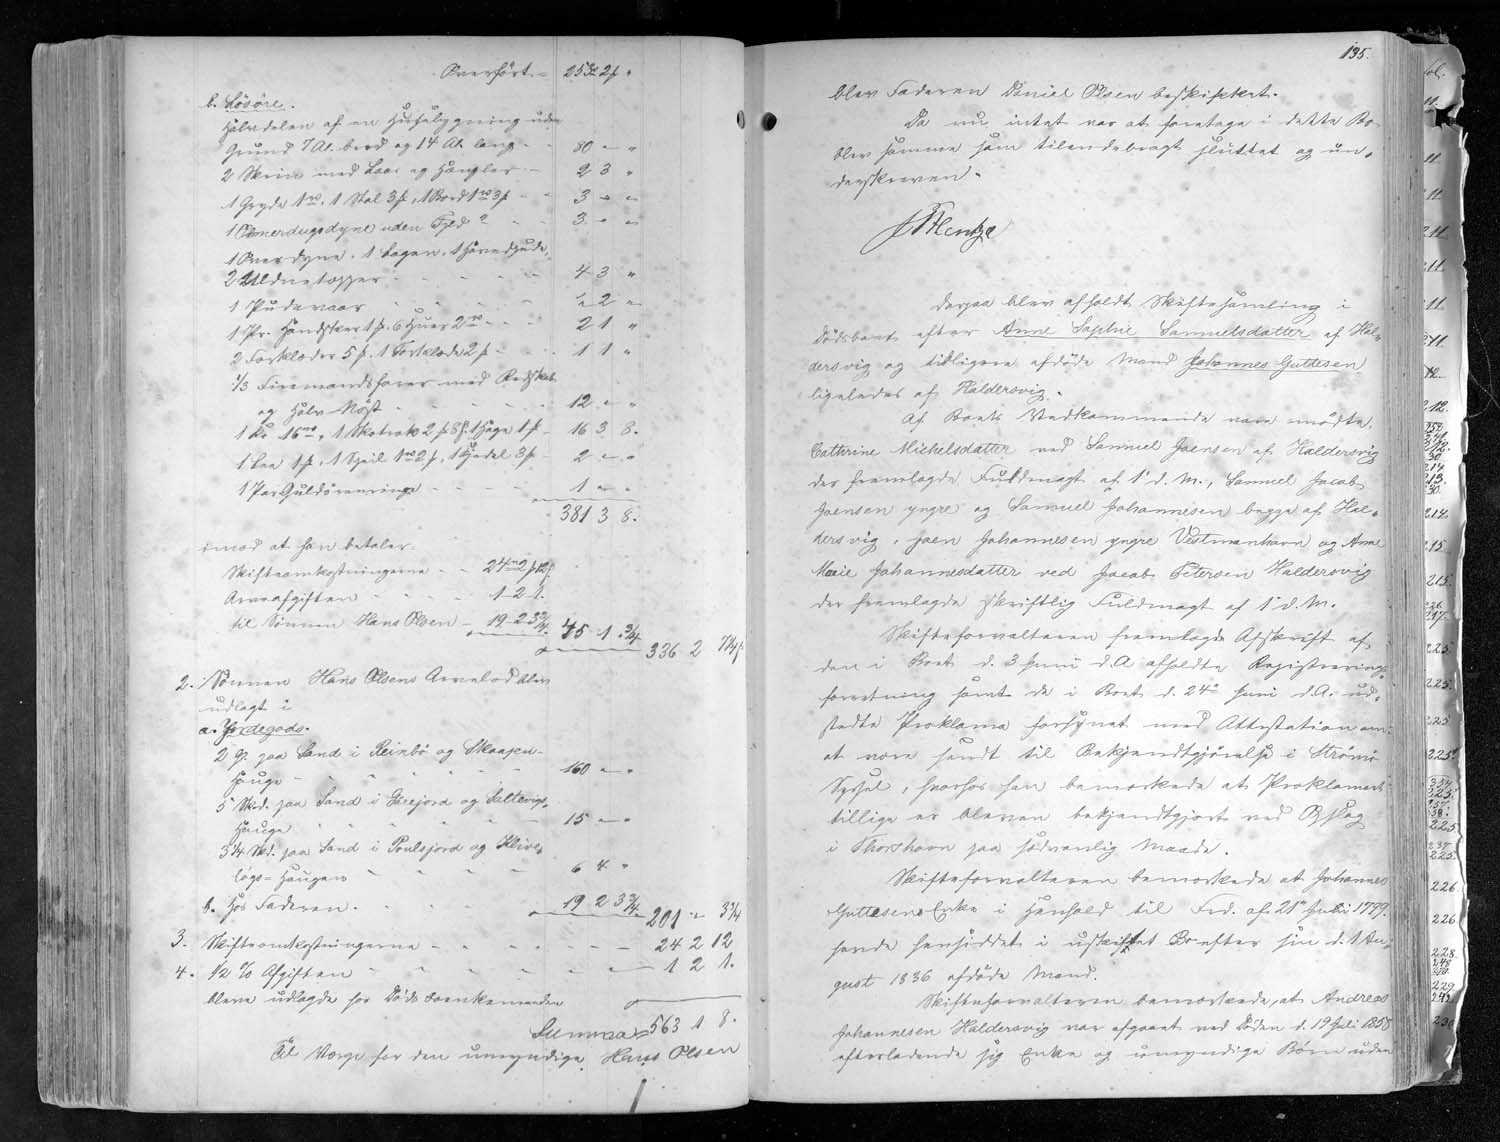 Overført - 253 2 "
b. Løsøre.
Halvdelen af en Huusbygning uden
Grund 7 Al. bred og 14 Al. lang - - 80 " "
2 Skrin med Laas og Hængsler - 2 3 "
1 Gryde 1 rd, 1 Stol 3 ß, 1 Bord 1 rd 3 ß - - 3 " "
uden Fyld 2 - - 3 " "
1 Overdyne, 1 Lagen, 1 Hovedpude,
2 Uldne - - - - 4 3 "
1 Pudevaar - - - - " 2 "
1 Pr. Handsker 1 ß, 6 Huer 2 rd - - - 2 1 "
2 Forklæder 5 ß, 1 Forklæde 2 ß - - - 1 1 "
1/3 Firemandsfarer med Redskab
og halv Nøst - - - - - 12 " "
1 Ko 16 rd, 1 2 ß 8 ß, 1 1 ß - 16 3 8.
1 Lee 1 ß, 1 Speil 1 rd 2 ß, 1 3 ß - 2 " "
1 Par Guldørenringe - - - - 1 " "
381 3 8.
imod at han betaler
Skifteomkostningerne - - 24 rd 2 ß 12
Arveafgiften - - - - - 1 2 1.
til Sønnen Hans Olsen - 19 2 3 3/4 45 1 3/4
336 2 7 1/4
2. Sønnen Hans Olsens Arvelod blev
udlagt i
a. Jordegods.
2 G. paa Sand i Reinbø og Skaapen
Hauge - - - - - - 160 " "
5 Skd. paa Sand i og Saltvigs
Hauge - - - - - 15 " "
3 1/4 Skd. paa Sand i Poulsjord og
Haugen - - - - - 6 4 "
b. Hos Faderen - - - - - 19 2 3 3/4 201 " 3 3/4
3. Skifteomkostningerne - - - - - - 24 2 12
4. 1/2 % Afgiften - - - - - - - 1 2 1.
bleve udlagte for
Summa 563 1 8.
Til Værge for den umyndige Hans Olsen
195.
blev Faderen Daniel Olsen beskikket.
Da nu intet var at foretage i dette Bo
blev samme som tilendebragt sluttet og un-
derskreven.
HMüller
Derpaa blev afholdt Skiftesamling i
Dødsboet efter Anne Sophie Samuelsdatter af Hal-
dersvig og tidligere afdøde Mand Johannes Guttesen
ligeledes af Haldersvig.
Af Boets Vedkommende vare mødte
Cathrine Michelsdatter ved Samuel Joensen af Haldersvig
der fremlagde Fuldmagt af 1' d. M., Samuel Jacob
Joensen yngre og Samuel Johannesen begge af Hal-
dersvig, Joen Johannesen yngre Vestmanhavn og Anne
Marie Johannesdatter ved Jacob Petersen Haldersvig
der fremlagde skriftlig Fuldmagt af 1' d. M.
Skifteforvalteren fremlagde Afskrift af
den i Boet d. 3 Juni d. A. afholdte Registrerings-
forretning samt de i Boet d. 24de Juni d. A. ud-
stedte Proklama forsynet med Attestation om
at være sendt til Bekjendtgjørelse i Strømø
Syssel, hvorhos han bemærkede at Proklamaet
tillige er bleven bekjendtgjort ved Opslag
i Thorshavn paa sædvanlig Maade.
Skifteforvalteren bemærkede at Johannes
Guttesens Enke i Henhold til Frd. af 21de Juni 1799
havde hensiddet i uskiftet Bo efter sin d. 1 Au-
gust 1836 afdøde Mand.
Skifteforvalteren bemærkede, at Andreas
Johannesen Haldersvig var afgaaet ved Døden d. 19 Juli 1858
efterladende sig Enke og umyndige Børn uden